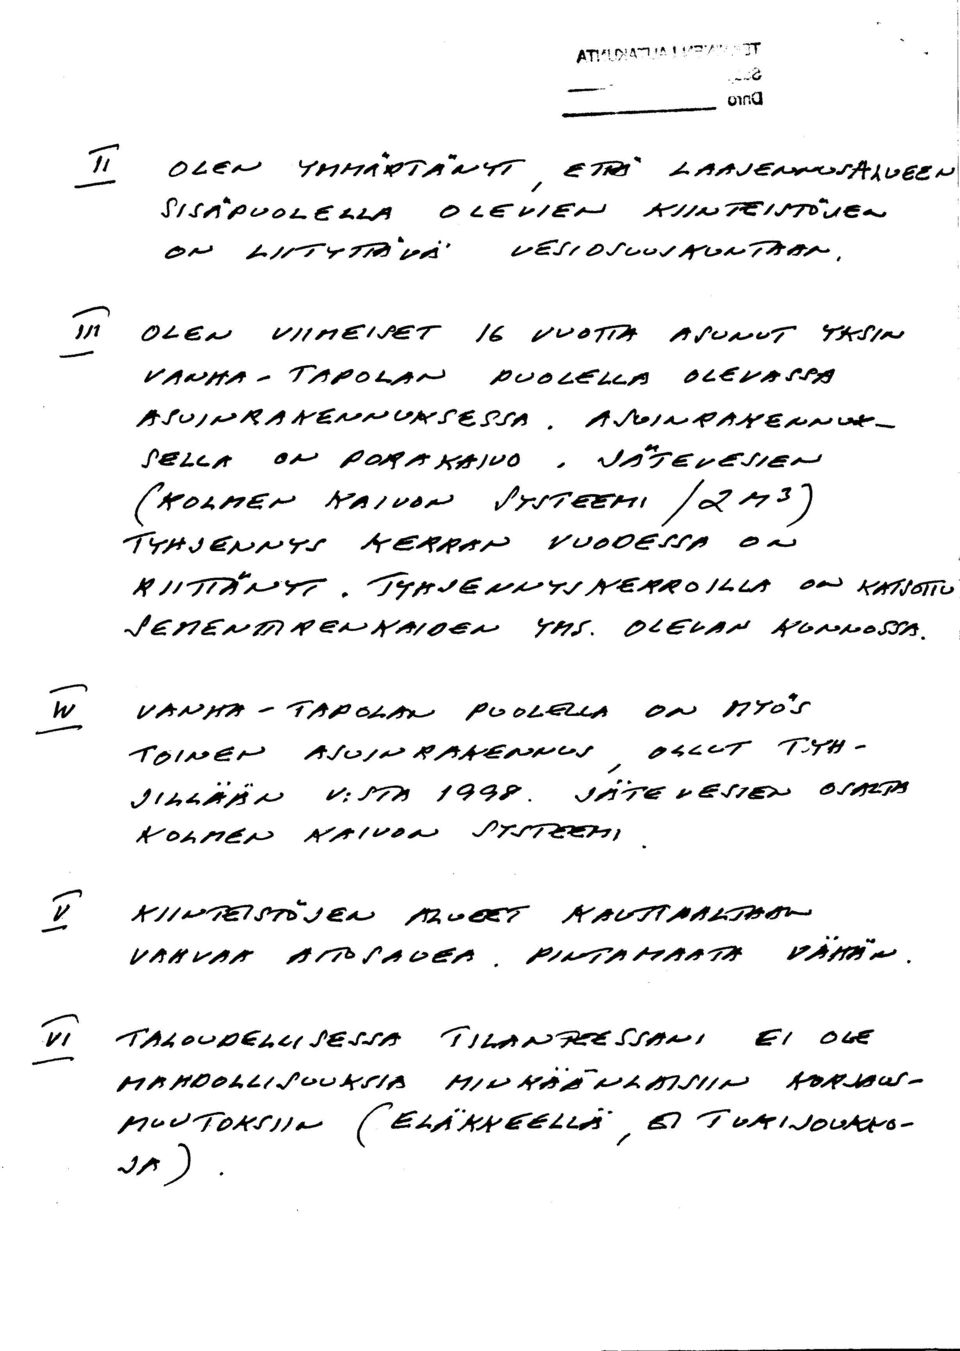 II OLEN YMMÄRTÄNYT, ETTÄ LAAJENNUSALUEEN
SISÄPUOLELLA OLEVIEN KIINTEISTÖJEN
ON LIITYTTÄVÄ VESIOSUUSKUNTAAN.
III OLEN VIIMEISET 16 VUOTTA ASUNUT YKSIN
VANHA-TAPOLAN PUOLELLA OLEVASSA
ASUINRAKENNUKSESSA. ASUINRAKENNUK-
SELLA ON PORAKAIVO. JÄTEVESIEN
(KOLMEN KAIVON SYSTEEMI /2 M3)
TYHJENNYS KERRAN VUODESSA ON
RIITTÄNYT. TYHJENNYSKERROILLA ON KATSOTTU
SEMENTTIRENKAIDEN YMS. OLEVAN KUNNOSSA.
IV VANHA-TAPOLAN PUOLELLA ON MYÖS
TOINEN ASUINRAKENNUS, OLLUT TYH-
JILLÄÄN V:STA 1998. JÄTEVESIEN OSALTA
KOLMEN KAIVON SYSTEEMI.
V KIINTEISTÖJEN ALUEET KAUTTAALTAAN
VAHVAA AITOSAVEA. PINTAMAATA VÄHÄN.
VI TALOUDELLISESSA TILANTEESSANI EI OLE
MAHDOLLISUUKSIA MINKÄÄNLAISIIN KORJAUS-
MUUTOKSIIN (ELÄKKEELLÄ, EI TUKIJOUKKO-
JA).